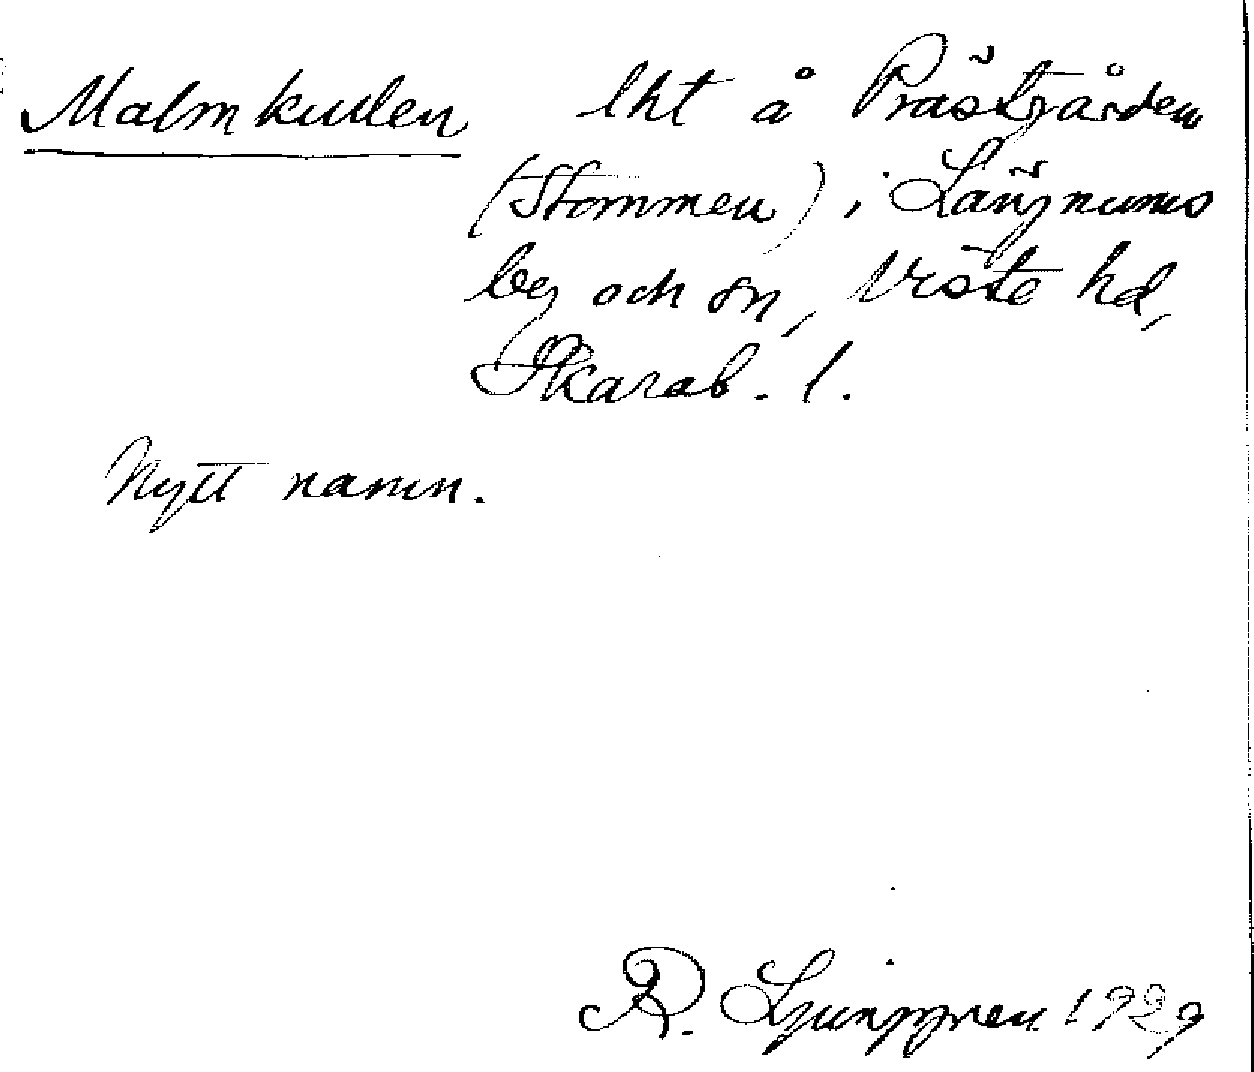 Malmkullen lht å Prästgården
(Stommen) i Längnums
by och sn, Viste hd,
Skarab. l.
Nytt namn.
R. Ljunggren 1929